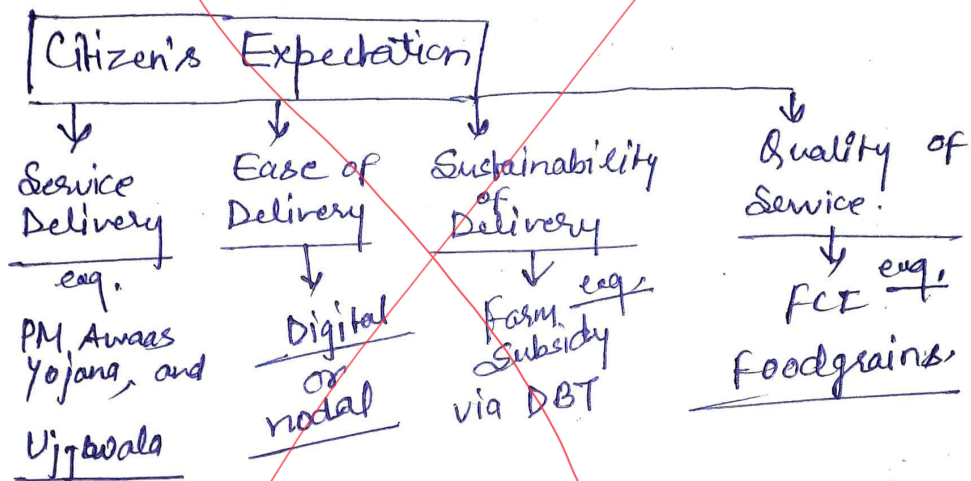 Citizen's Expectation
Service
Delivery
e.g.
PM Awaas
Yojana, and
Ujjwala
Ease of
Delivery
Digital
or
nodal
Sustainability
of
Delivery
e.g.
Farm
Subsidy
via DBT
Quality of
Service.
e.g.
FCI
Foodgrains.